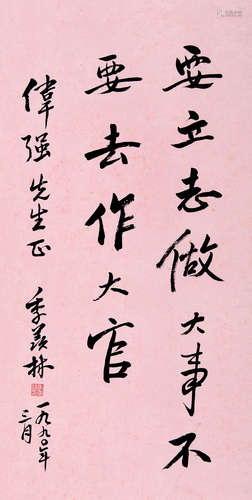 要立志做大事不
要去作大官
偉强先生正
季羡林
一九九〇年
三月